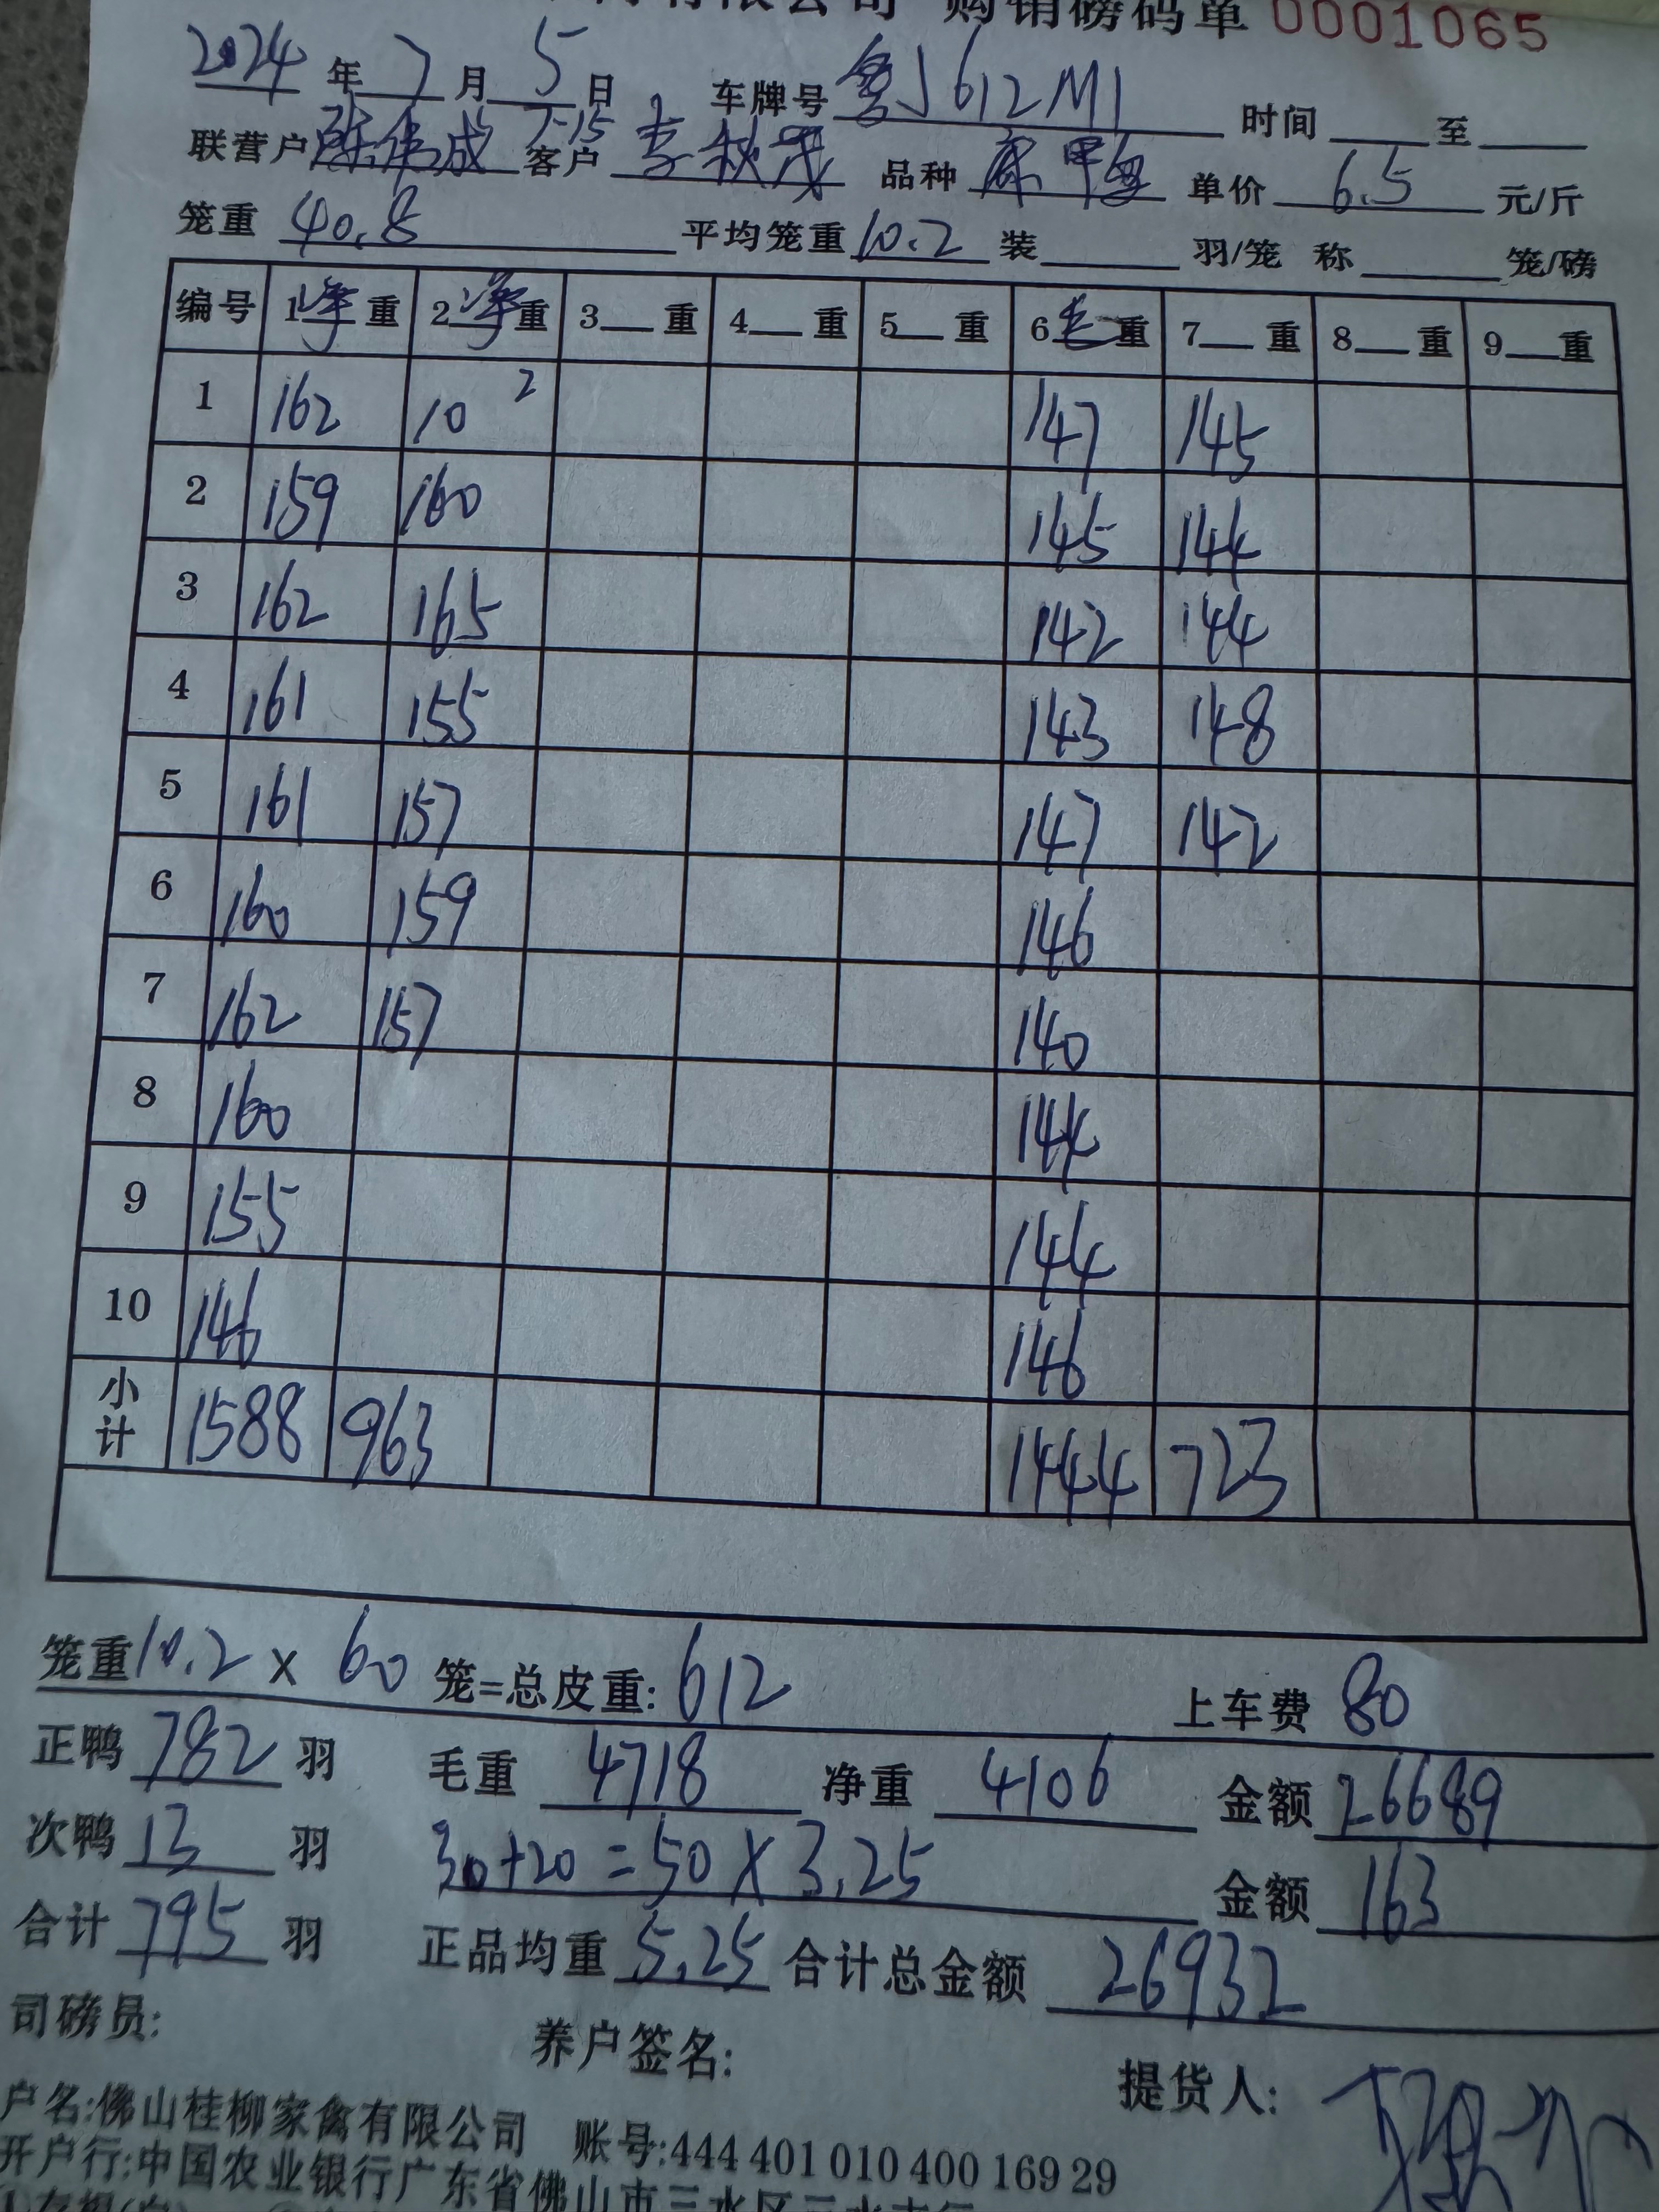 有限公司 购销磅码单 0001065
2024 年 7 月 5 日 车牌号 粤J612M1 时间 至
联营户 陈伟成 7-15 客户 李秋茂 品种 麻鸭 单价 6.5 元/斤
笼重 40.8 平均笼重 10.2 装 羽/笼 称 笼/磅
编号 1净重 2净重 3 重 4 重 5 重 6毛重 7 重 8 重 9 重
1 162 10 2 147 145
2 159 160 145 144
3 162 165 142 144
4 161 155 143 148
5 161 157 147 142
6 160 159 146
7 162 157 140
8 160 144
9 155 144
10 146 146
小计 1588 963 1444 723
笼重 10.2 × 60 笼=总皮重: 612 上车费 80
正鸭 782 羽 毛重 4718 净重 4106 金额 26689
次鸭 13 羽 30+20=50×3.25 金额 163
合计 795 羽 正品均重 5.25 合计总金额 26932
司磅员: 养户签名: 提货人:
户名:佛山桂柳家禽有限公司 账号:444 401 010 400 169 29
开户行:中国农业银行广东省佛山市三水区三水支行